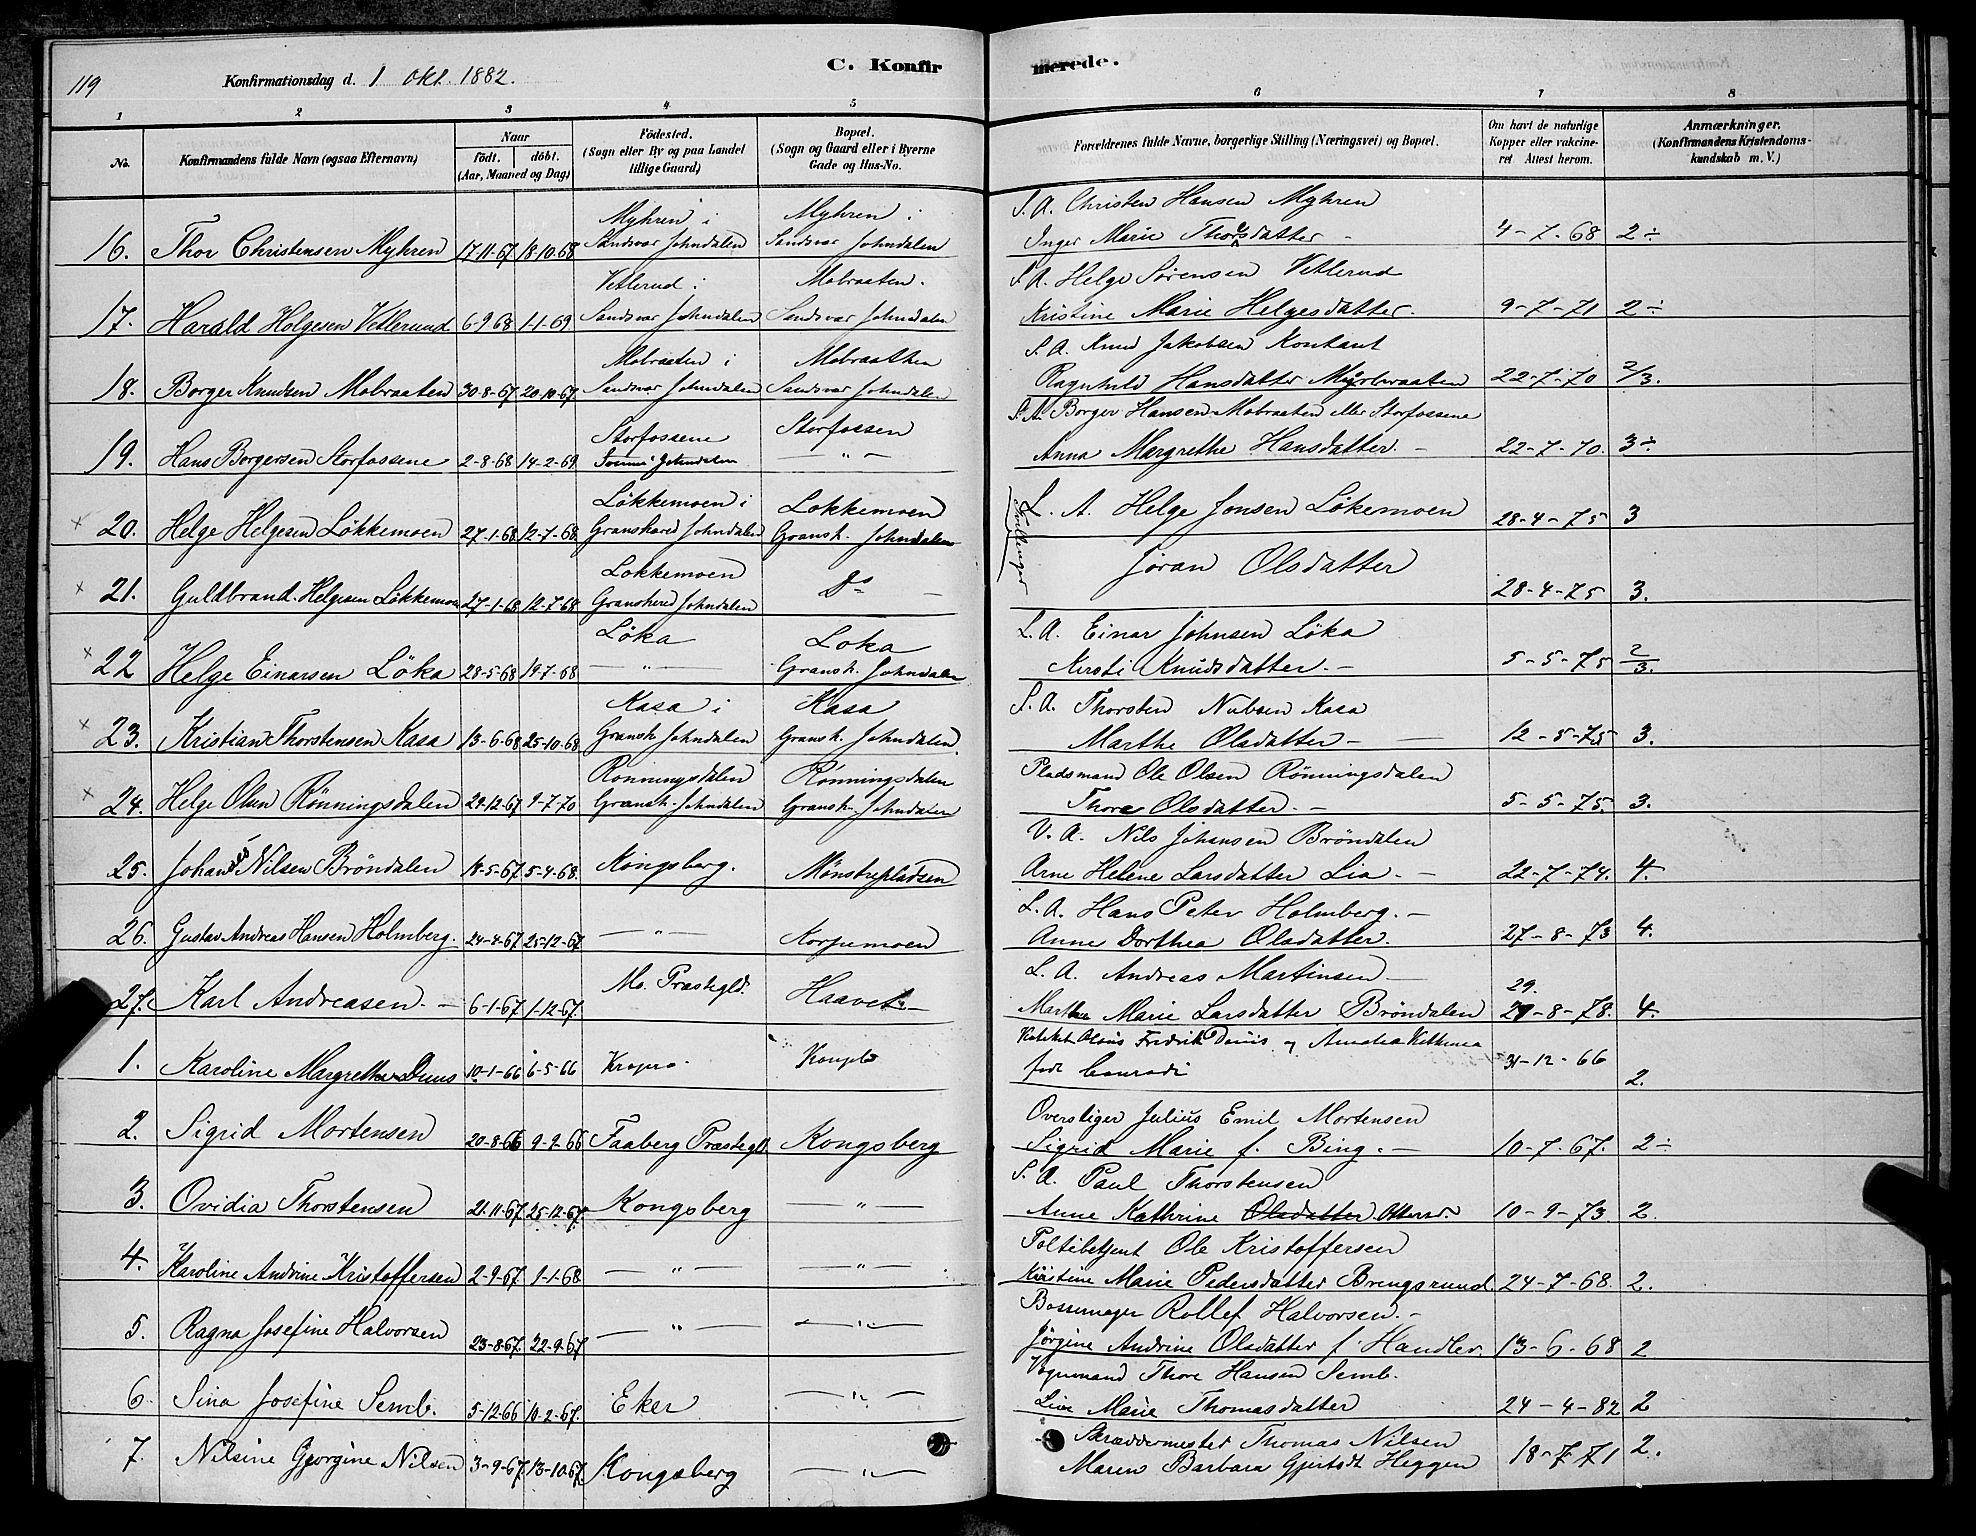 119
Konfirmationsdag d. 1 Okt. 1882.
C. Konfirmerede.
1 2 3 4 5 6 7 8
No.
Konfirmandens fulde Navn (ogsaa Efternavn)
Naar
født. døbt.
(Aar, Maaned og Dag)
Fødested.
(Sogn eller By og paa Landet
tillige Gaard.)
Bopæl.
(Sogn og Gaard eller i Byerne
Gade og Hus-No.
Forældrenes fulde Navne, borgerlige Stilling (Næringsvei) og Bopæl.
Om havt de naturlige
Kopper eller vakcine-
ret Attest herom.
Anmærkninger.
(Konfirmandens Kristendoms-
kundskab m. V.)
Myhren i Myhren i S. A. Christen Hansen Myhren
16. Thor Christensen Myhren 17-11-67 18-10-68 Sandsvar Johndalen Sandsvar Johndalen Inger Marie Thorsdatter - 4-7-68 2÷
Vetlerud i Mobraaten. S. A. Helge Sørensen Vetlerud
17. Harald Holgesen Vetlerund 6-9-68 1-1-69 Sandsvar Johndalen Sandsvar Johndalen Kristine Marie Helgesdatter. 9-7-71 2÷
Mobraaten i Mobraatten S. A. Knud Jakobsen Kontant
18. Borger Knudsen Mobraaten 30-8-67 20-10-67 Sandsvar Johndalen Sandsvar Johndalen Ragnhild Hansdatter 22-7-70 2/3.
Storfossene Storfossen S. A. Borger Hansen Mobraaten eller Storfossene
19. Hans Borgersen Storfossene 2-8-68 14-2-69 Johndalen — " — Anna Margrethe Hansdatter. - 22-7-70. 3÷
Tvillinger
Løkkemoen i Lokkemoen L. A. Helge Jonsen Løkemoen
× 20. Helge Helgesen Løkkemoen 27-1-68 12-7-68 Gransherred Johndalen Gransh. Johndalen 28-4-75 3
Lokkemoen Do — Jøran Olsdatter
× 21. Guldbrand Helgesen Løkkemoen 27-1-68 12-7-68 Gransherred Johndalen 28-4-75 3.
Løka Loka L. A. Einar Johnsen Løka
× 22 Helge Einarsen Løka 28-5-68 19-7-68 — " — Gransh. Johndalen Kirsti Knudsdatter. - 5-5-75 2/3.
Kasa i Kasa S. A. Thorsten Nubsen Kasa
× 23. Kristian Thorstensen Kasa 13-6-68 25-10-68 Gransh Johndalen Gransh. Johndalen. Marthe Olsdatter - — 12-5-75 3.
Ronningsdalen Rønningsdalen Pladsmand Ole Olsen Rønningsdalen
× 24. Helge Olsen Rønningsdalen 29-12-67 9-7-70 Gransh. Johndalen Gransh. Johndalen Thore Olsdatter. - 5-5-75. 3.
V. A. Nils Johansen Brøndalen
25. Johannes Nilsen Brøndalen 18-5-67 5-4-68. Kongsberg. Mønstrepladsen Arne Helene Larsdatter Lia - — 22-7-74. 4.
L. A. Hans Peter Holmberg. -
26. Gustav Andreas Hansen Holmberg. 24-4-67 25-12-67 — " — Korpemoen Anne Dorthea Olsdatter. 27-8-73 4.
Mo. Præstegld. L. A. Andreas Martinsen — 29.
27. Karl Andreasen. — 6-1-67 1-12-67. Haavet Marthe Marie Larsdatter Brøndalen 29-8-78. 4.
Fredrik og Amalia
1. Karoline Margrethe 10-1-66 6-5-66 født Conradi 31-12-66 2.
Overstiger Julius Emil Mortensen
2. Sigrid Mortensen 20-8-66 9-2-66 Faaberg Præstegld. Kongsberg Sigrid Marie f. Bing. - 10-7-67. 2÷
S. A. Paul Thorstensen
3. Ovidia Thorstensen 21-11-67 25-12-67 Kongsberg — " — Anne Kathrine Olsdatter 10-9-73. 2.
Politibetjent Ole Kristoffersen
4. Karoline Andrine Kristoffersen 2-9-67 1-1-68 — " — — " — Kirstine Marie Pedersdatter Brengsrund. 24-7-68. 2.
Bøssemager Rollef Halvorsen. -
5. Ragna Josefine Halvorsen 23-8-67 22-9-67 — " — — " — Jørgine Andrine Olsdatter f. Handler. 13-6-68 2
Vognmand Thore Hansen Semb.
6. Sina Josefine Semb. 5-12-66 10-2-67. Eker — " — Live Marie Thomasdatter 24-4-82 2
Skræddermester Thomas Nilsen
7. Nilsine Gjorgine Nilsen 3-9-67 13-10-67 Kongsberg — " — Maren Barbara Gjertsdt Heggen 18-7-71 2.